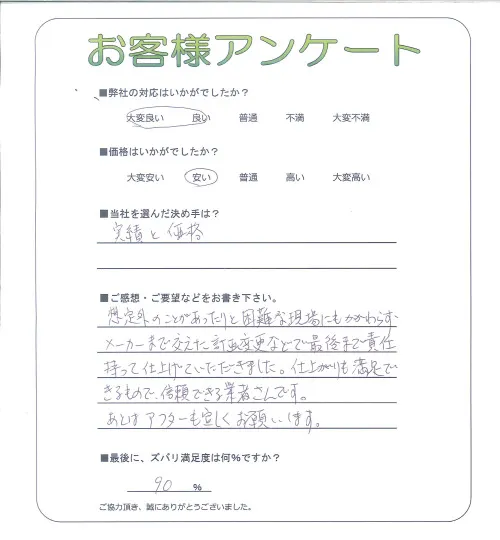 お客様アンケート
■弊社の対応はいかがでしたか？
大変良い 良い 普通 不満 大変不満
■価格はいかがでしたか？
大変安い 安い 普通 高い 大変高い
■当社を選んだ決め手は？
実績と価格
■ご感想・ご要望などをお書き下さい。
想定外のことがあったりと困難な現場にもかかわらず
メーカーまで交えた計画変更などで最後まで責任
持って仕上げていただきました。仕上がりも満足で
きるもので、信頼できる業者さんです。
あとはアフターも宜しくお願いします。
■最後に、ズバリ満足度は何％ですか？
90 ％
ご協力頂き、誠にありがとうございました。